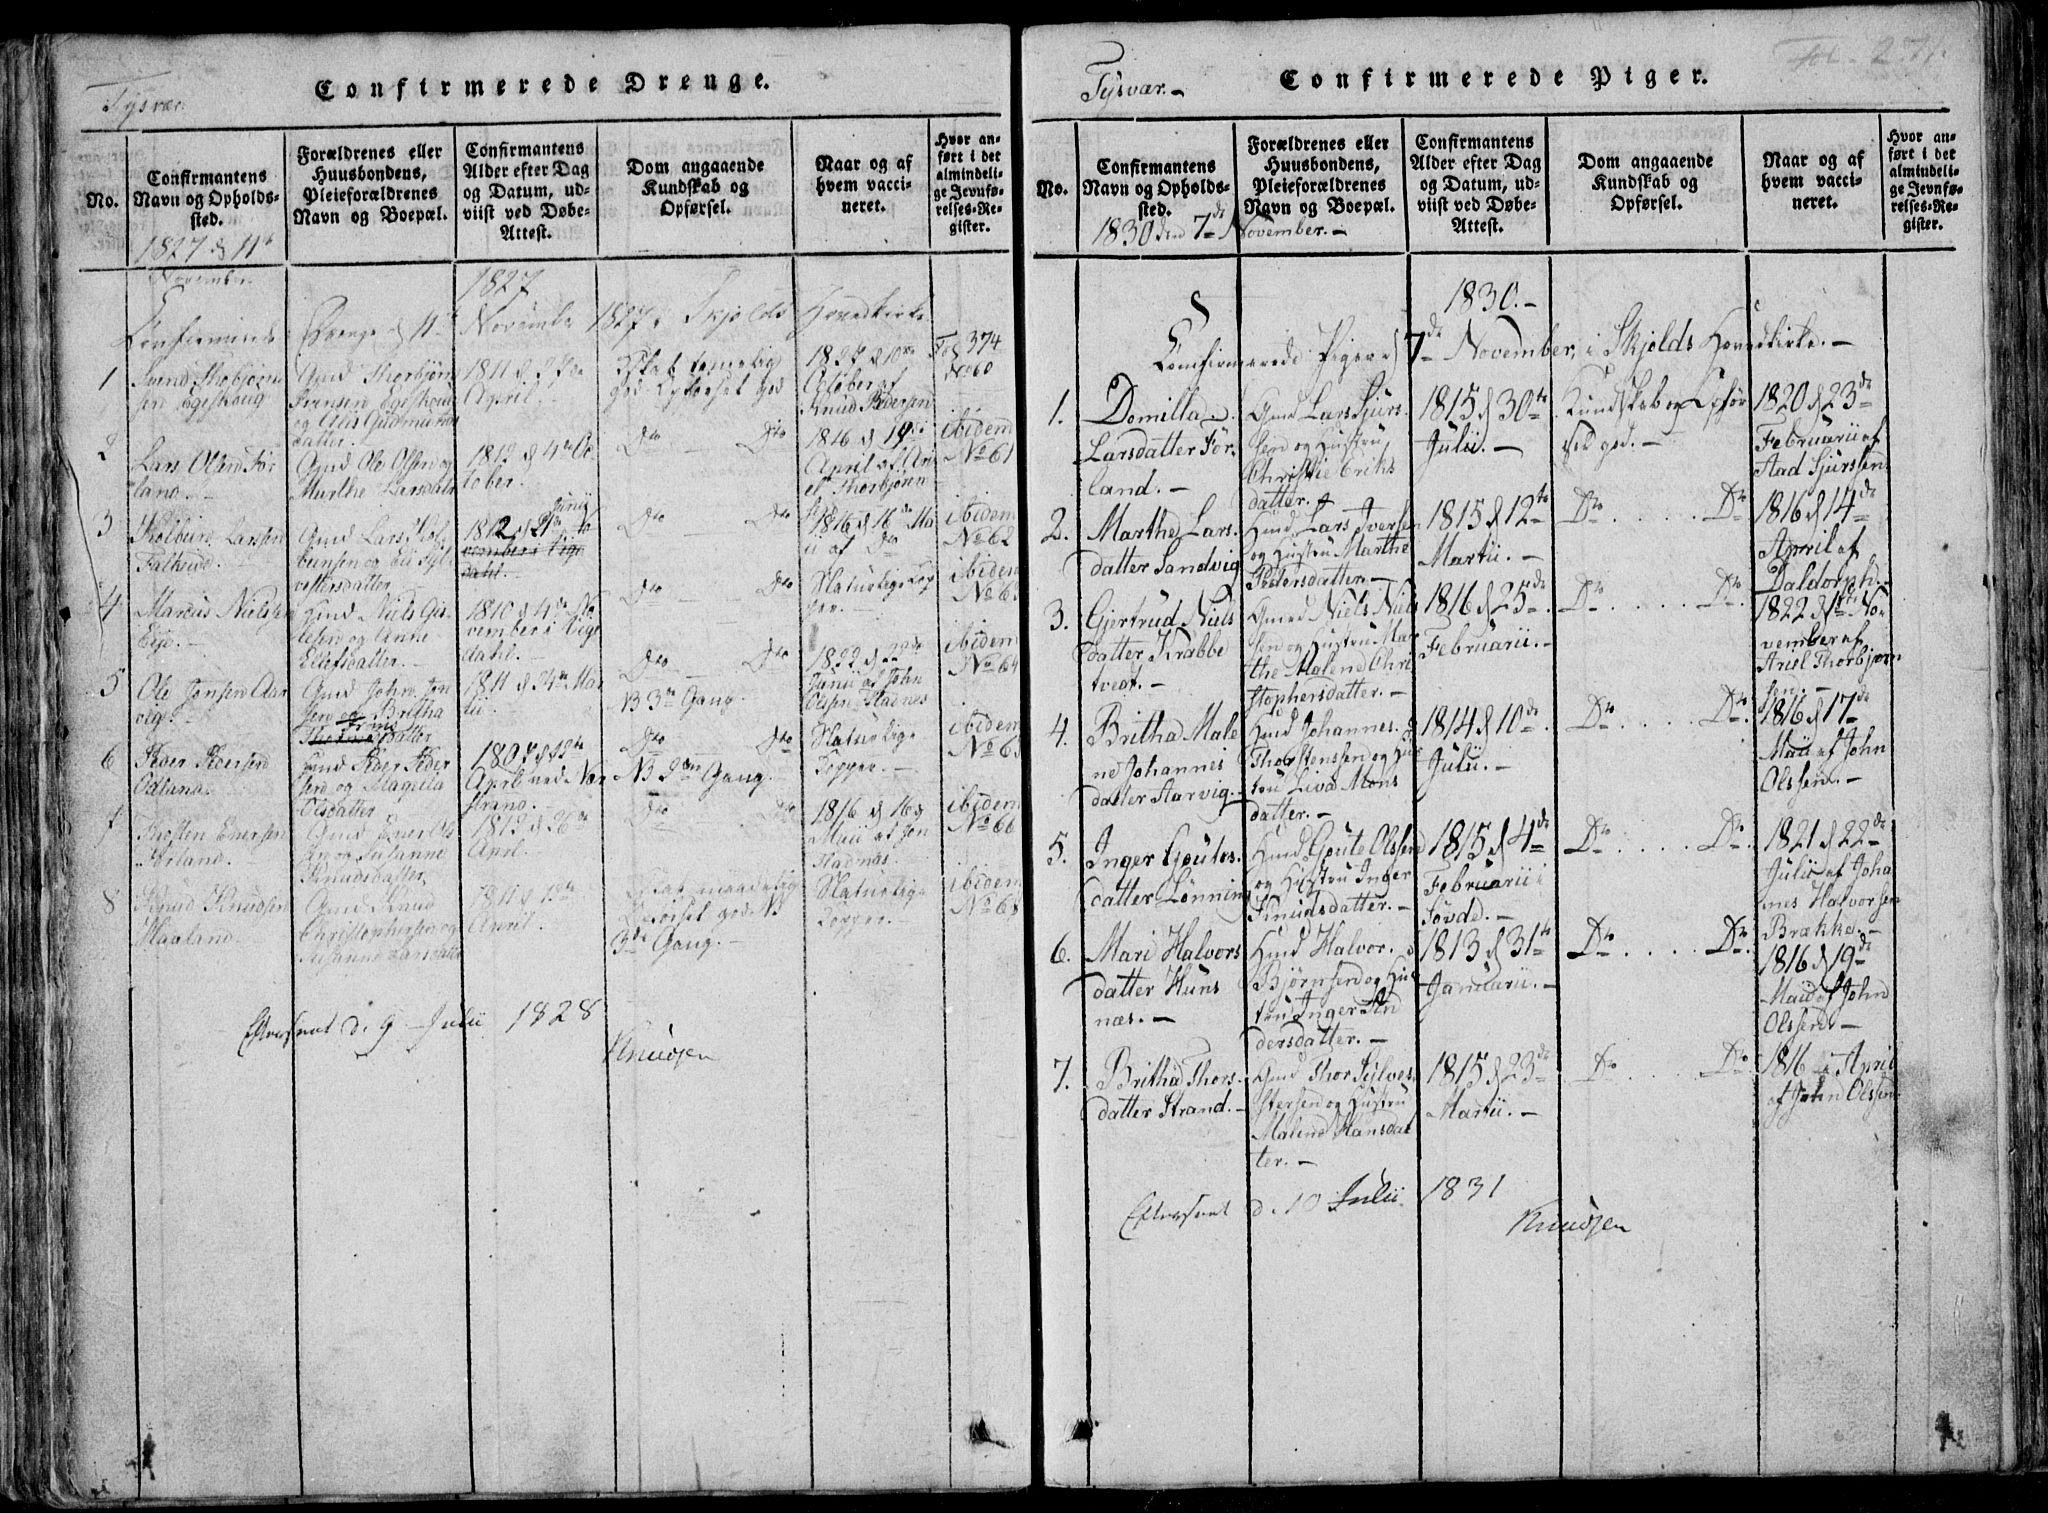 Tysvær
Confirmerede Drenge.
No.
Confirmantens
Navn og Opholds-
sted.
Forældrenes eller
Huusbondens,
Pleieforældrenes
Navn og Boepæl.
Confirmantens
Alder efter Dag
og Datum, ud-
viist ved Døbe-
Attest.
Dom angaaende
Kundskab og
Opførsel.
Naar og af
hvem vacci-
neret.
Hvor an-
ført i det
almindeli-
ge Jevnfø-
relses-Re-
gister.
1827 d 11te
November
1827
Drenge d 11te November 1827 Skjolds Hovedkirke
1
Svend Thorbjørn
sen Egeskoug
Gmd Thorbjørn
April.
1827 d 10de
October af
Knud Pedersen
Fol 374
No 60
2
Lars Olsen Før
land.
Gmd Ole Olsen og
Marthe Larsdatt
1812 d 4de Oc
tober.
Do Do
1816 d 19de
April af Ari
el Thorbjørn
sen
ibidem
No 61
3
Kolbein Larsen
Falkeid.
Gmd Lars Kol
bensen og Eli Syl
vestersdatter
Junii
Do Do
1816 d 16de Ma
ii af Do
ibidem
No 62
4
Marcus Nielsen
Eije.
Hmd Niels
og Anne
Ellefsdatter.
1810 d 4de No
vember i Vigs
dahl.
Do Do
Naturlige Kop
per.
ibidem
No 63
5
Ole Jonsen Aar
vig.
Gmd John Jon
sen og Britha
datter
1811 d 24de Mar
tii.
Do Do
NB 3de Gang.
1822 d 22de
Junii af John
Olsen Stadnes
ibidem
No 64
6
Peder Pedersen
Odland.
Hmd Peder Peder
sen og Magnila
Olsdatter
April ved Nor
strand.
Do Do
NB 2den Gang.
Naturlige
Kopper.
ibidem
No 65
7
Thosten Enersen
Førland.
Gmd Ener Ols
sen og Susanne
Knudsdatter
1812 d 26de
April.
Do Do
1816 d 16d
Maii af Jon
Stadnæs.
ibidem
No 66
8
Knud Knudsen
Haaland.
Gmd Knud
Christophersen og
Susanne Larsdatt
1811 d 13de
April.
Kskab maadelig
Opførsel god. NB
3de Gang.
Naturlige
Kopper.
ibidem
No 68
Efterseet d. 9 Julii 1828
Knudsen
Fol. 271.
Tysvær.
Confirmerede Piger.
No.
Confirmantens
Navn og Opholds-
sted.
Forældrenes eller
Huusbondens,
Pleieforældrenes
Navn og Boepæl.
Confirmantens
Alder efter Dag
og Datum, ud-
viist ved Døbe-
Attest.
Dom angaaende
Kundskab og
Opførsel.
Naar og af
hvem vacci-
neret.
Hvor an-
ført i det
almindeli-
ge Jevnfø-
relses-Re-
gister.
1830 den 7de November.
1830.
Confirmerede Piger d 7de November, i Skjolds Hovedkirke.
1.
Domilla
Larsdatter Før
land.
Gmd Lars Sjurs
sen og Hustru
Christie Eriks
datter.
1815 d 30te
Julii.
Kundskab og Opfør
sel god.
1820 d 23de
Februarii af
Aad Sjurssen
2.
Marthe Lars
datter Sandvig
Hmd Lars Iversen
og Hustru Marthe
Pedersdatter.
1815 d 12te
Martii.
Do Do
1816 d 14de
April af
Daldorph.
3.
Gjertrud Niels
datter Krabbe
tveit.
Gmd Niels Niels
sen og Hustru Mar
the Malene Chri
stophersdatter.
1816 d 25de
Februarii.
Do Do
1822 d 1ste No
vember af
Ariel Thorbjørn
sen.
4.
Britha Male
ne Johannes
datter Aarvig.
Hmd Johannes
Thorstenssen og Hus
tru Liva Mons
datter.
1814 d 10de
Julii.
Do Do
1816 d 17de
Maii af John
Olssen.
5.
Inger Goutes
datter Lønning
Hmd Goute Olssen
og Hustru Inger
Knudsdatter.
1815 d 4de
Februarii i
Søvde.
Do Do
1821 d 22de
Julii af Joha
nes Halvorsen
Brække.
6.
Mari Halvors
datter Huns
næs.
Hmd Halvor
Bjørnsen og Hus
tru Inger An
dersdatter.
1813 d 31te
Januarii.
Do Do
1816 d 19de
Maii af John
Olssen.
7.
Britha Thors
datter Strand.
Gmd Thor Sylves
stersen og Hustru
Malene Hansdat
ter.
1815 d 23de
Martii.
Do Do
1816 i April
af John Olssen
Efterseet d. 10 Julii 1831
Knudsen